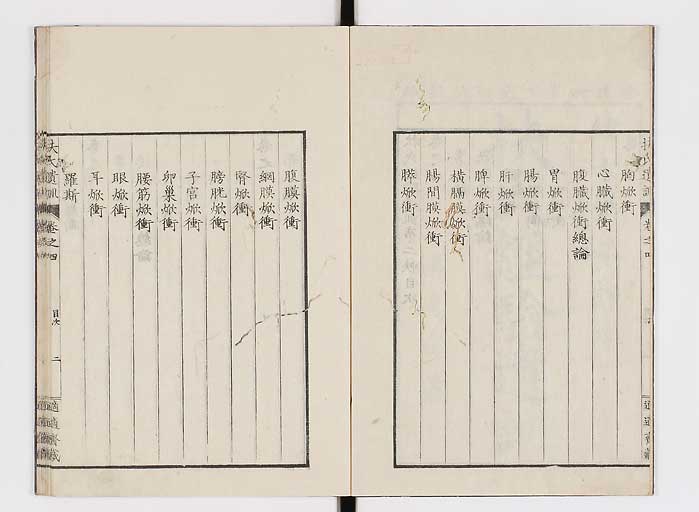 胸焮衝
心臓焮衝
腹臓焮衝總論
胃焮衝
腸焮衝
肝焮衝
脾焮衝
横膈膜焮衝
腸間膜焮衝
膵焮衝
腹膜焮衝
網膜焮衝
腎焮衝
膀胱焮衝
子宮焮衝
卵巣焮衝
腰筋焮衝
眼焮衝
耳焮衝
羅斯
扶氏遺訓
卷之四
目次
二
適適齋藏